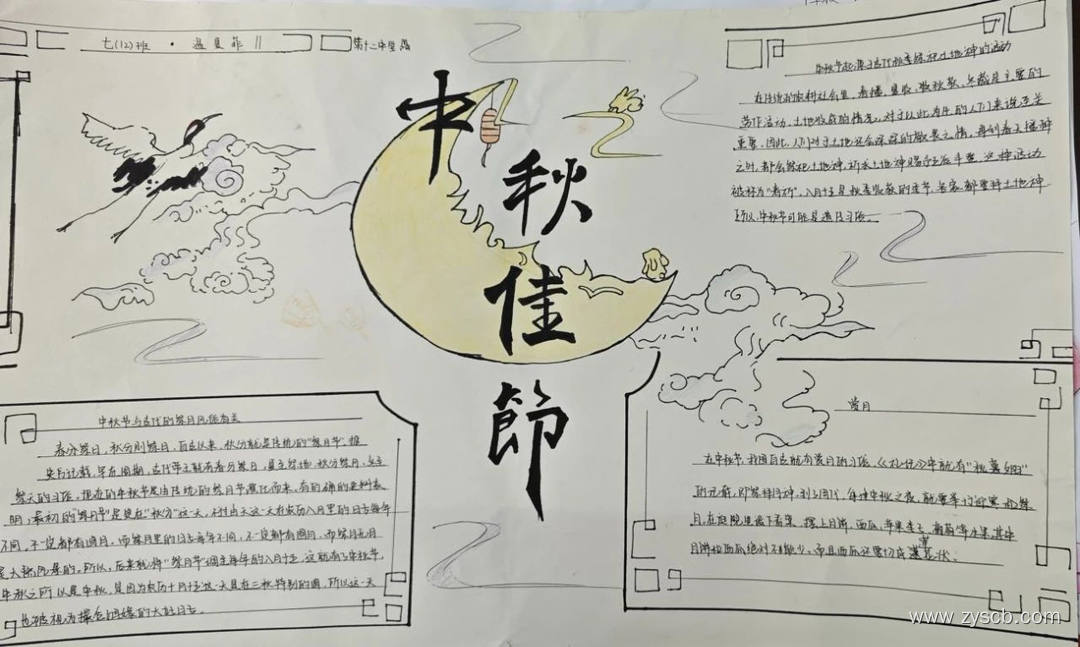 七(12)班 ·
第十二中学
中秋佳節
中秋节起源于古代秋季祭祀土地神的活动
在传统的农耕社会里，春播、夏锄、秋收、冬藏是主要的
劳作活动，土地收获的情况，对于以此为生的人们来说至关
重要。因此，人们对于土地还会深深的敬畏之情，每到春天播种
之时，都会祭祀土地神，祈求土地神赐予五谷丰登，这种活动
被称为"春祈"，八月十五是秋季收获的季节，各家都要拜土地神
所以，中秋节可能是遗留习俗。
中秋节与古代的祭月风俗有关
春分祭日，秋分则祭月，自古以来，秋分就是传统的"祭月节"，据
史书记载，早在周朝，古代帝王就有春分祭日，夏至祭地，秋分祭月，冬至
祭天的习俗，现在的中秋节是由传统的祭月节演化而来，有明确的史料表
明，最初的"祭月节"是定在"秋分"这一天，不过由天这一天在农历八月里的日子每年
不同，不一定都有圆月，而祭月里的日子每年不同，不一定都有圆月，而祭月无月
是大煞风景的。所以，后来就将"祭月节"调至每年的八月十五，这就有了中秋节，
中秋之所以是中秋，是因为农历十月十五这一天是在三秋特别的圆，所以这一天
也被视为撮合姻缘的大好日子。
赏月
在中秋节，我国自古就有赏月的习俗，《礼记》中就有"秋暮夕月"
的记载，即祭拜月神，到了周代，每逢中秋之夜，就要举行迎寒和祭
月，在庭院里设下香案，摆上月饼、西瓜、苹果、李子、葡萄等水果，其中
月饼和西瓜绝对不能少，而且西瓜还要切成莲花状。
www.zyscb.com